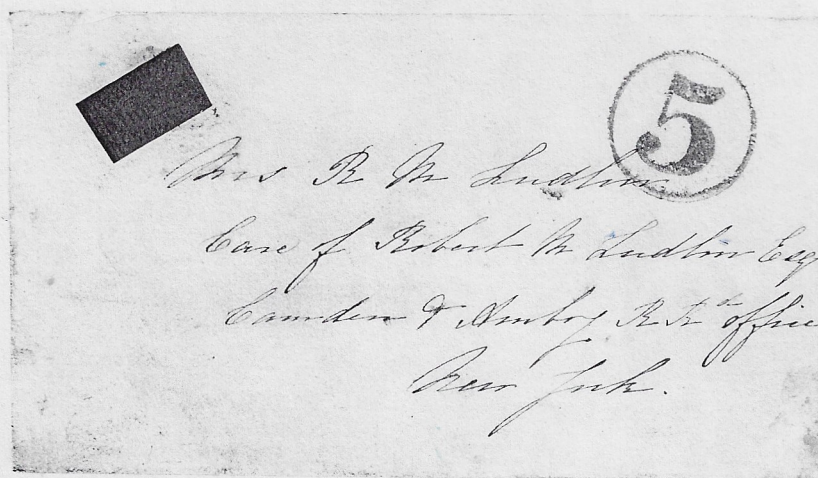 5
Mrs R M Ludlow
Care of Robert M Ludlow Esq
Camden & Amboy R Rd office
New York.